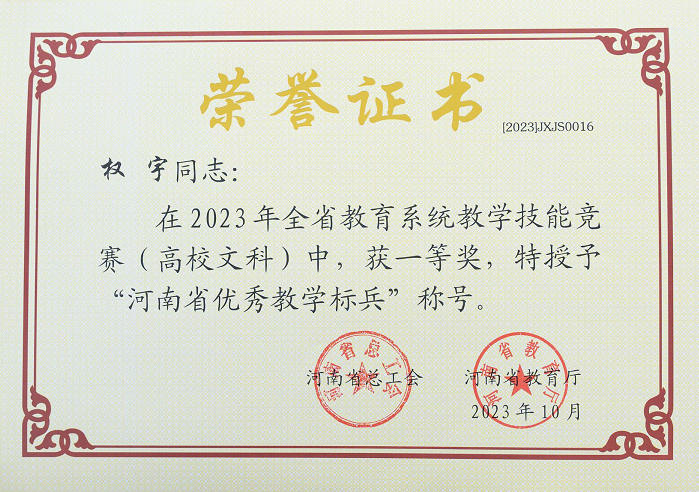 荣誉证书
[2023]JXJS0016
权 宇同志：
在2023年全省教育系统教学技能竞
赛（高校文科）中，获一等奖，特授予
“河南省优秀教学标兵”称号。
河南省总工会 河南省教育厅
2023年10月
河南省总工会
河南省教育厅